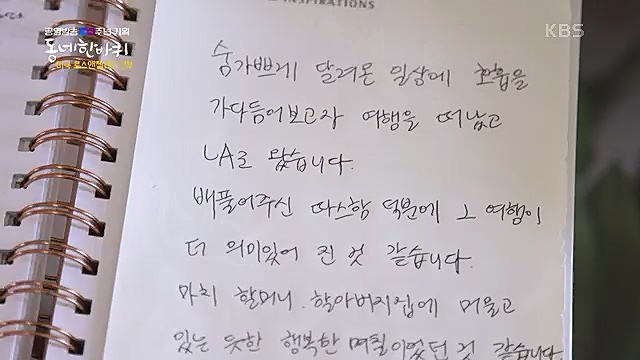 INSPIRATIONS
공영방송 주년기획
동네한바퀴
KBS
숨가쁘게 달려온 일상에 호흡을
가다듬어보고자 여행을 떠났고
LA로 왔습니다.
베풀어주신 따스함 덕분에 그 여행이
더 의미있어 진 것 같습니다.
마치 할머니, 할아버지집에 머물고
있는 듯한 행복한 며칠이었던 것 같습니다